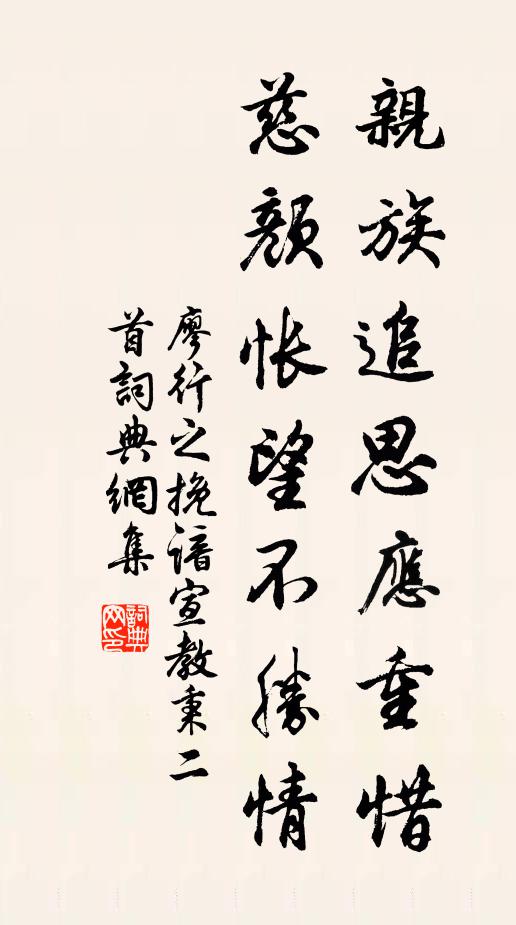 親族追思應重惜
慈顏悵望不勝情
廖行之挽諳宣教秉二
首詞典網集
詞典網印